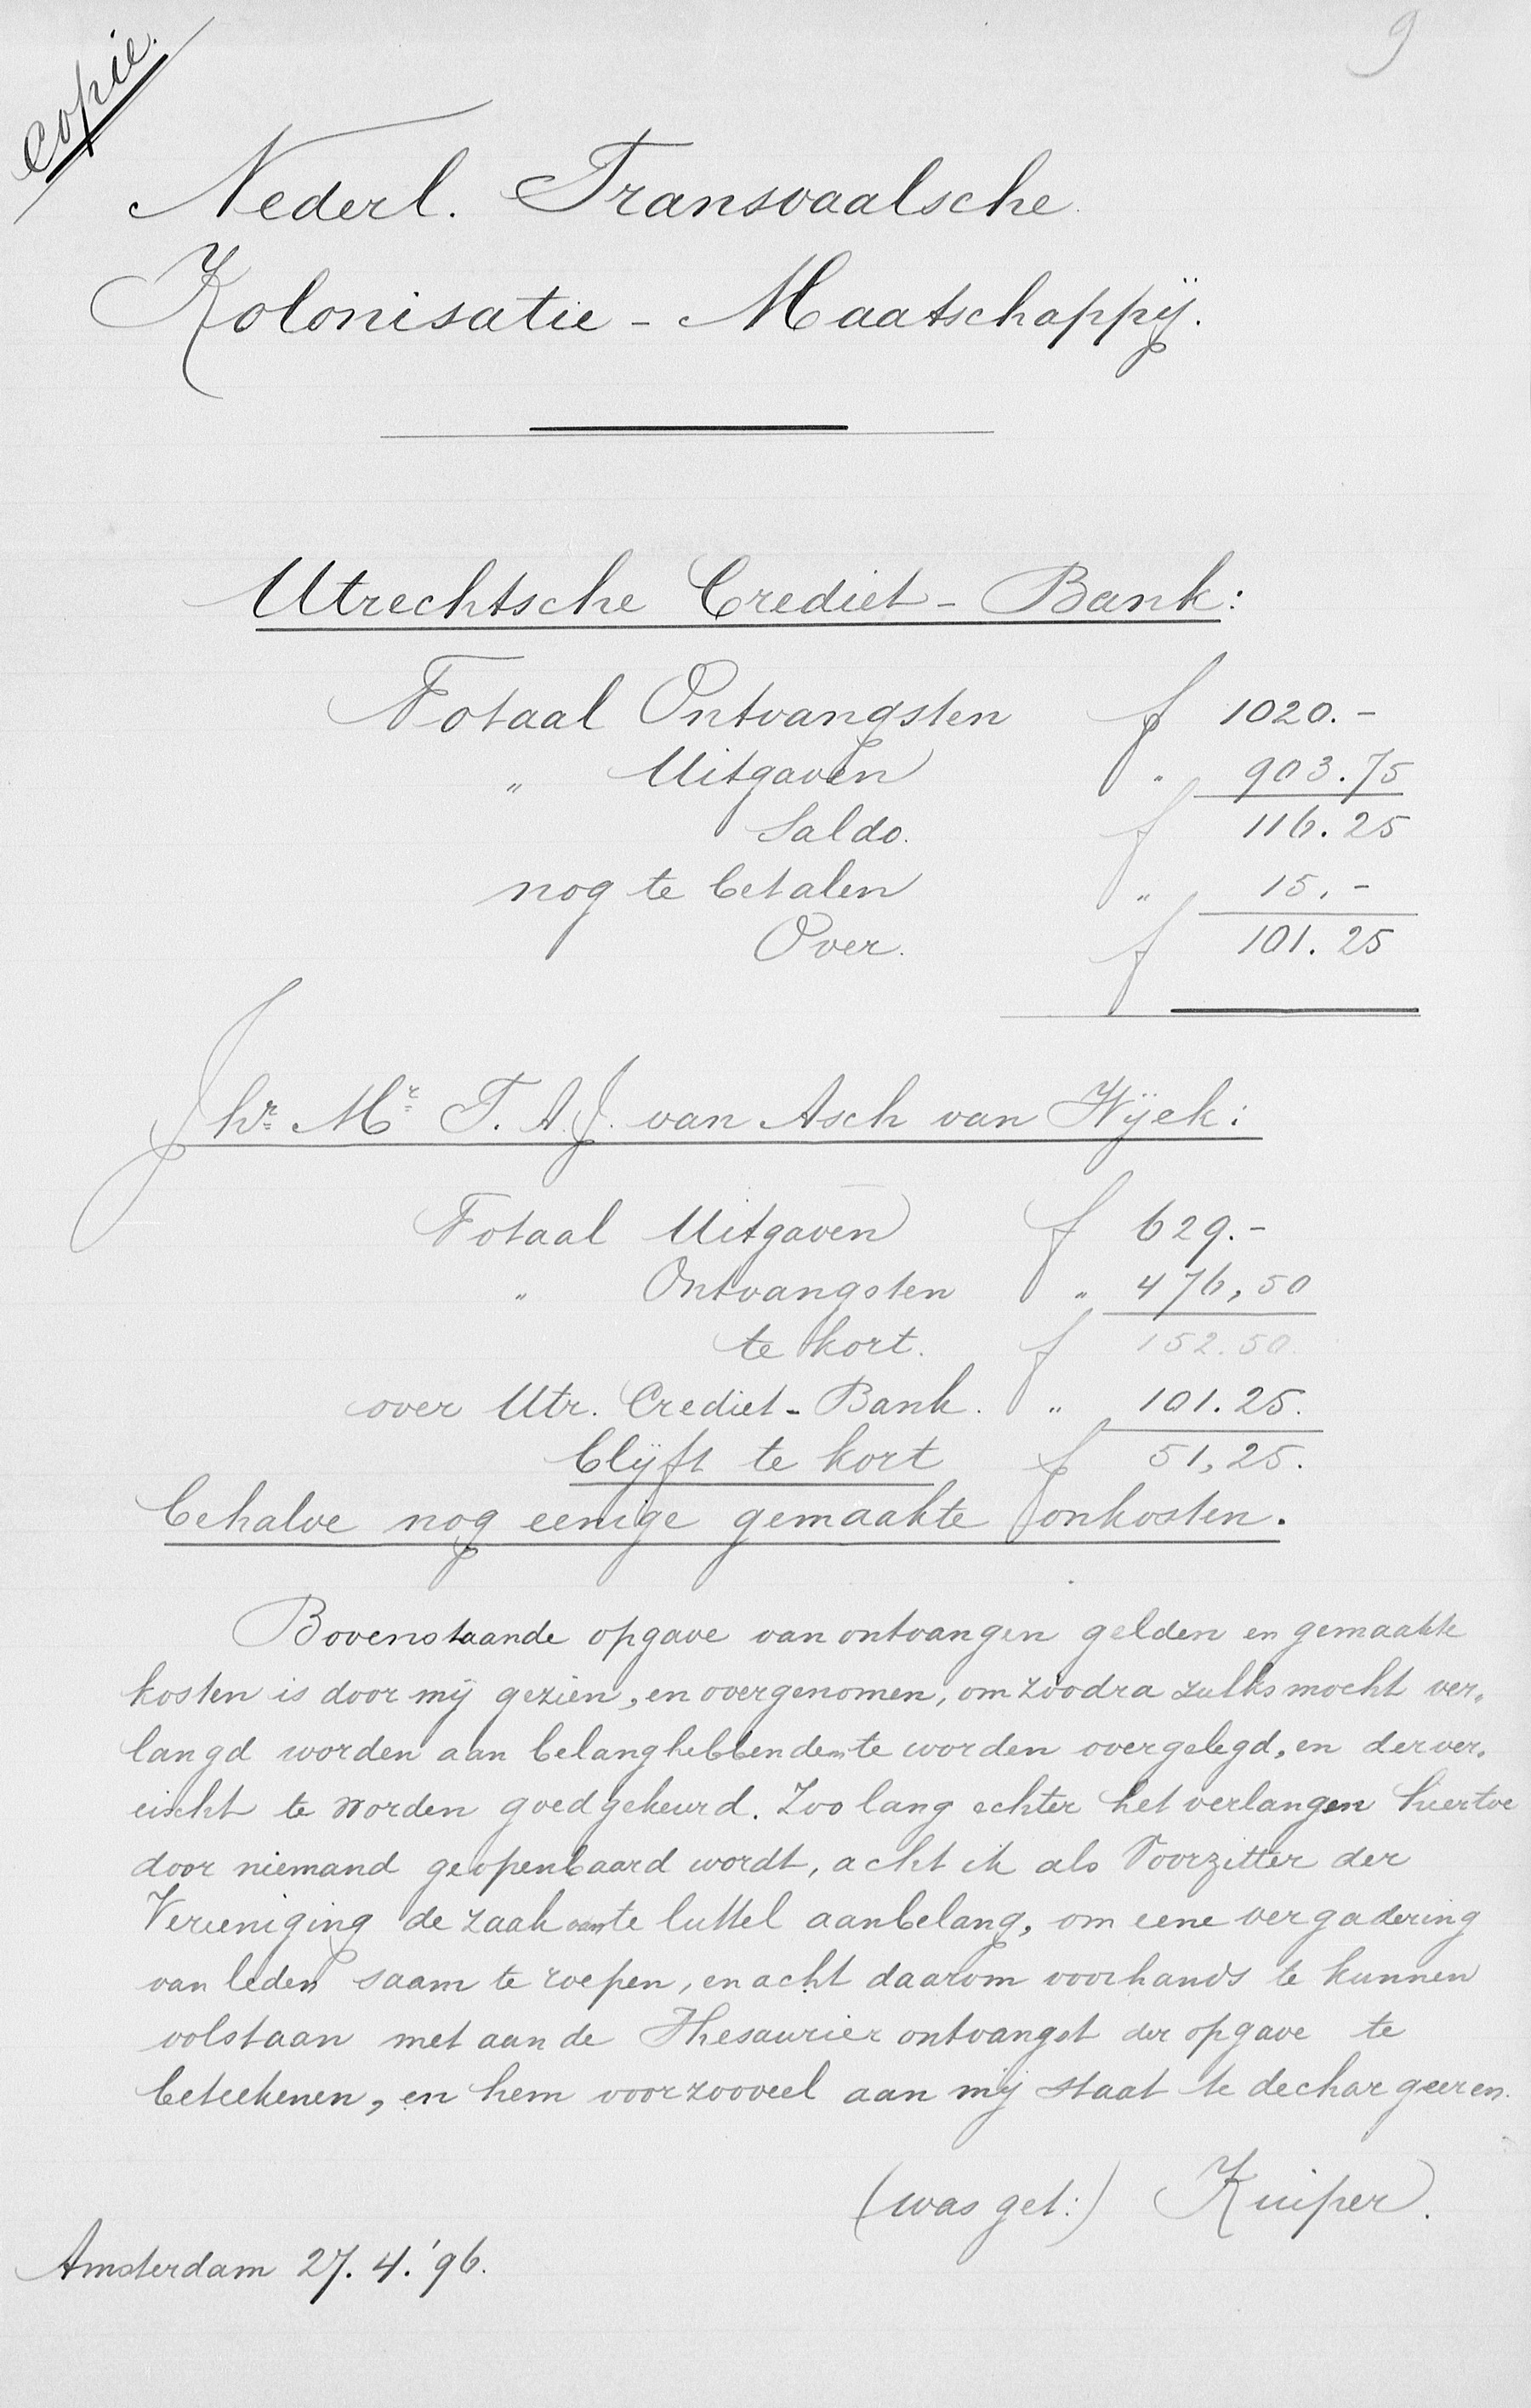 Copie.
9
Nederl. Transvaalsche
Kolonisatie - Maatschappij.
Utrechtsche Crediet - Bank:
Totaal Ontvangsten f 1020.-
" Uitgaven " 903.75
Saldo. f 116.25
nog te betalen " 15.-
Over. f 101.25
Jhr. Mr. T. A. J. van Asch van Wijck:
Totaal Uitgaven f 629.-
" Ontvangsten " 476,50
te kort. f 152.50.
over Utr. Crediet - Bank. " 101.25.
blijft te kort f 51,25.
behalve nog eenige gemaakte onkosten.
Bovenstaande opgave van ontvangen gelden en gemaakte
kosten is door mij gezien, en overgenomen, om zoodra zulks mocht ver-
langd worden aan belanghebbenden te worden overgelegd, en des ver-
eischt te worden goedgekeurd. Zoo lang echter het verlangen hiertoe
door niemand geopenbaard wordt, acht ik als Voorzitter der
Vereeniging de zaak van te luttel aanbelang, om eene vergadering
van leden saam te roepen, en acht daarom voorhands te kunnen
volstaan met aan de Thesaurier ontvangst der opgave te
beteekenen, en hem voor zooveel aan mij staat te dechargeeren.
(was get:) Kuiper.
Amsterdam 27. 4. '96.